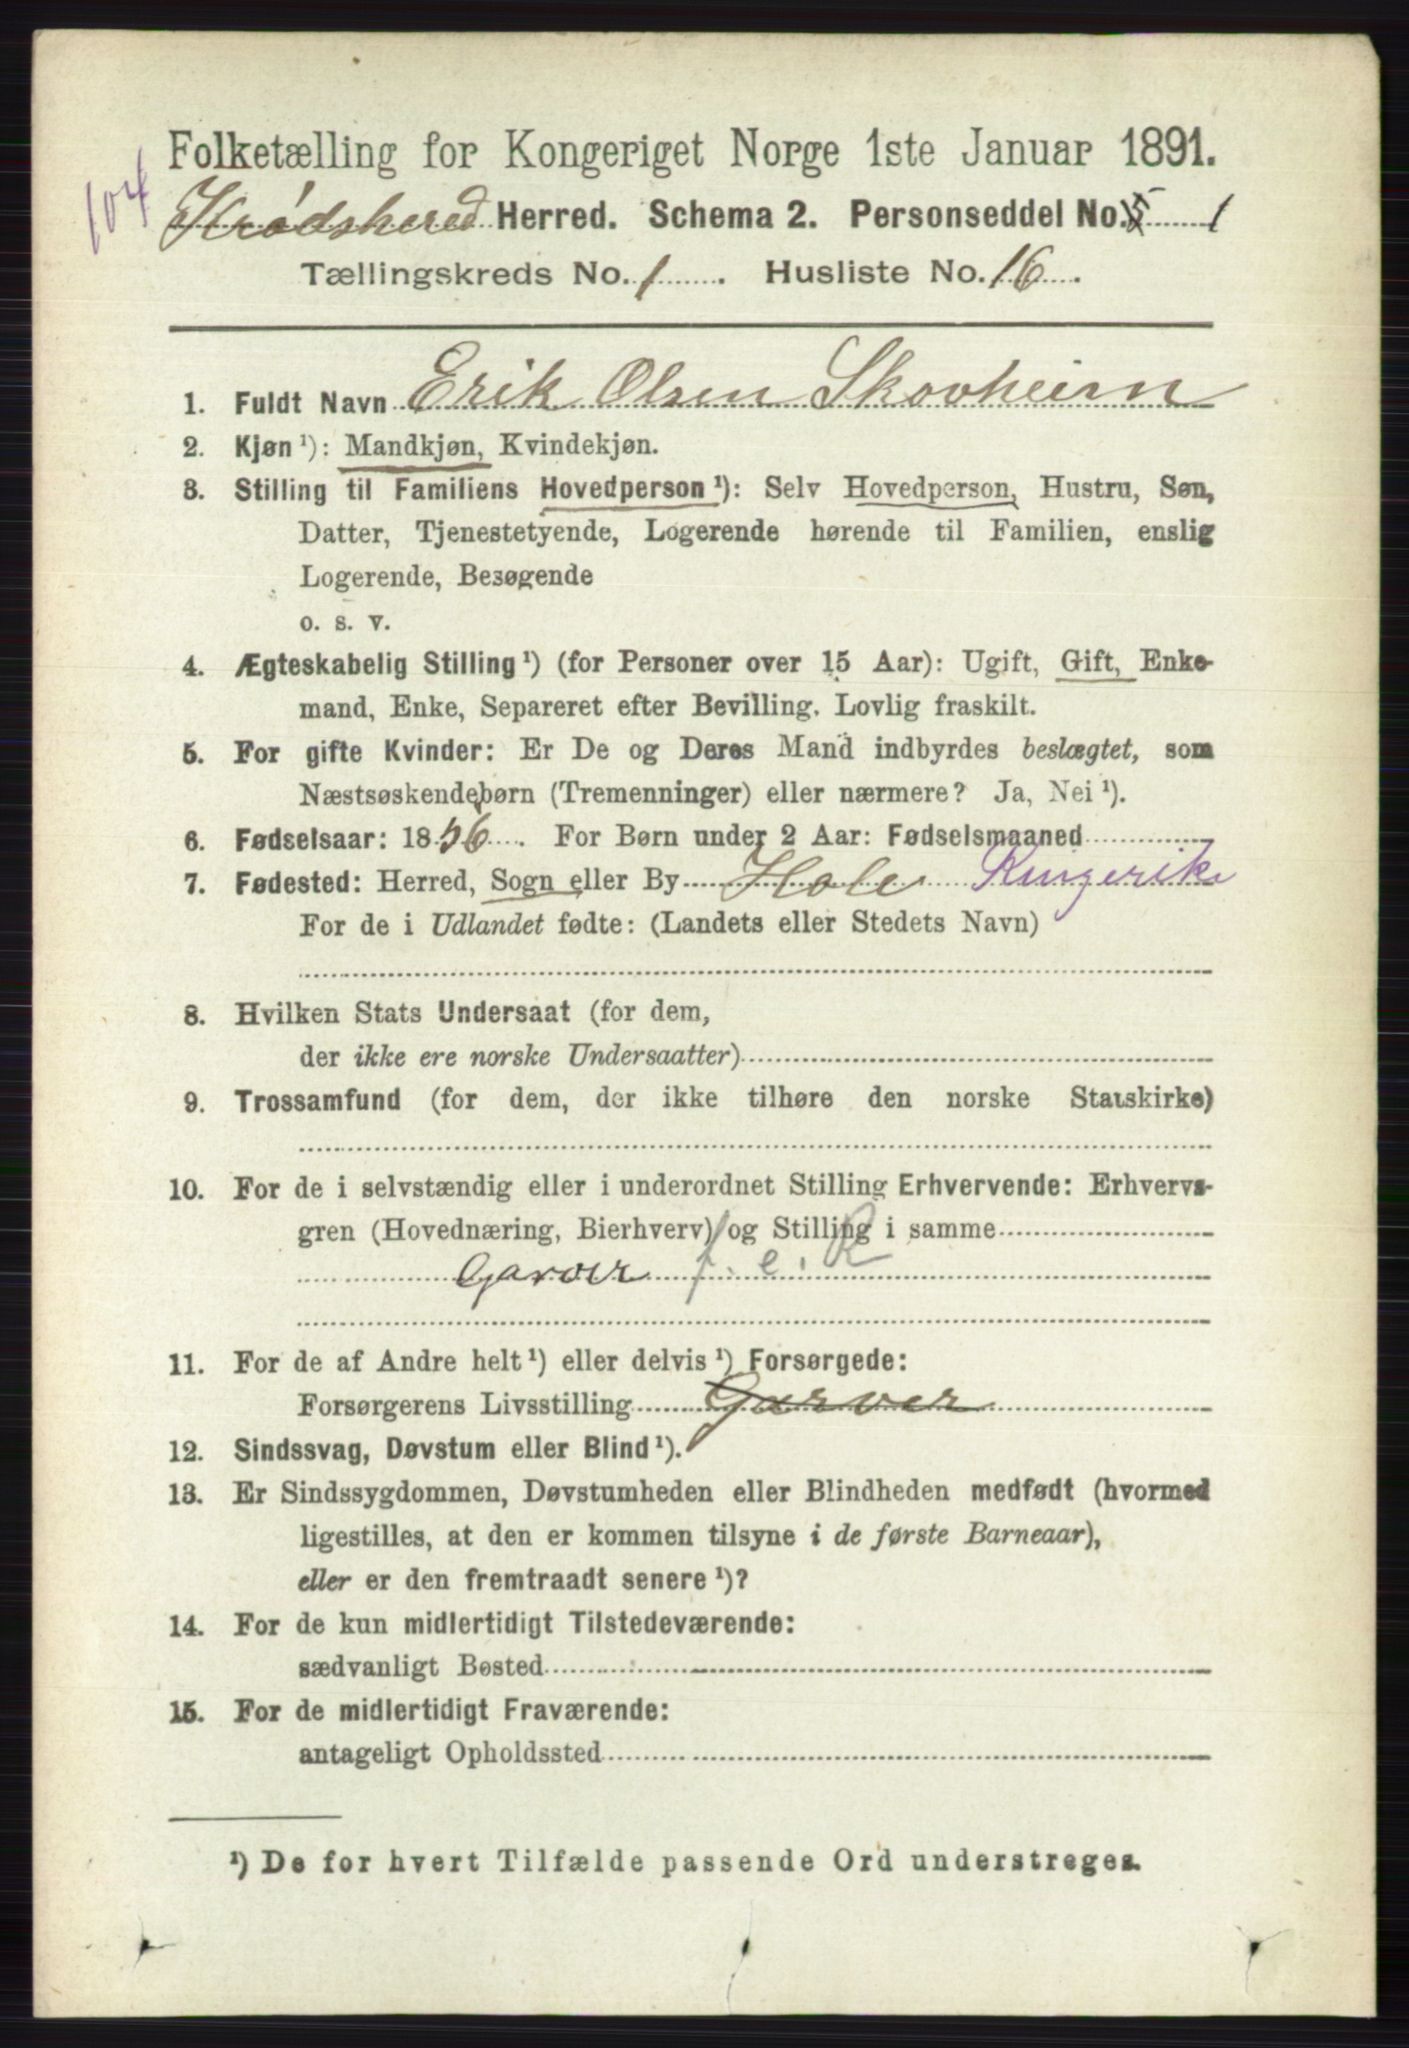 104
Folketælling for Kongeriget Norge 1ste Januar 1891.
Krødshered Herred. Schema 2. Personseddel No. 5 1
Tællingskreds No. 1. Husliste No. 16.
1. Fuldt Navn Erik Olsen Skovheim
2. Kjøn ¹): Mandkjøn, Kvindekjøn.
3. Stilling til Familiens Hovedperson ¹): Selv Hovedperson, Hustru, Søn,
Datter, Tjenestetyende, Logerende hørende til Familien, enslig
Logerende, Besøgende
o. s. v.
4. Ægteskabelig Stilling ¹) (for Personer over 15 Aar): Ugift, Gift, Enke-
mand, Enke, Separeret efter Bevilling. Lovlig fraskilt.
5. For gifte Kvinder: Er De og Deres Mand indbyrdes beslægtet, som
Næstsøskendebørn (Tremenninger) eller nærmere? Ja, Nei ¹).
6. Fødselsaar: 1856. For Børn under 2 Aar: Fødselsmaaned
7. Fødested: Herred, Sogn eller By Hole Ringerike
For de i Udlandet fødte: (Landets eller Stedets Navn)
8. Hvilken Stats Undersaat (for dem,
der ikke ere norske Undersaatter)
9. Trossamfund (for dem, der ikke tilhøre den norske Statskirke)
10. For de i selvstændig eller i underordnet Stilling Erhvervende: Erhvervs-
gren (Hovednæring, Bierhverv) og Stilling i samme
Garver f. e. R
11. For de af Andre helt ¹) eller delvis ¹) Forsørgede:
Forsørgerens Livsstilling Garver
12. Sindssvag, Døvstum eller Blind ¹).
13. Er Sindssygdommen, Døvstumheden eller Blindheden medfødt (hvormed
ligestilles, at den er kommen tilsyne i de første Barneaar),
eller er den fremtraadt senere ¹)?
14. For de kun midlertidigt Tilstedeværende:
sædvanligt Bosted
15. For de midlertidigt Fraværende:
antageligt Opholdssted
¹) De for hvert Tilfælde passende Ord understreges.